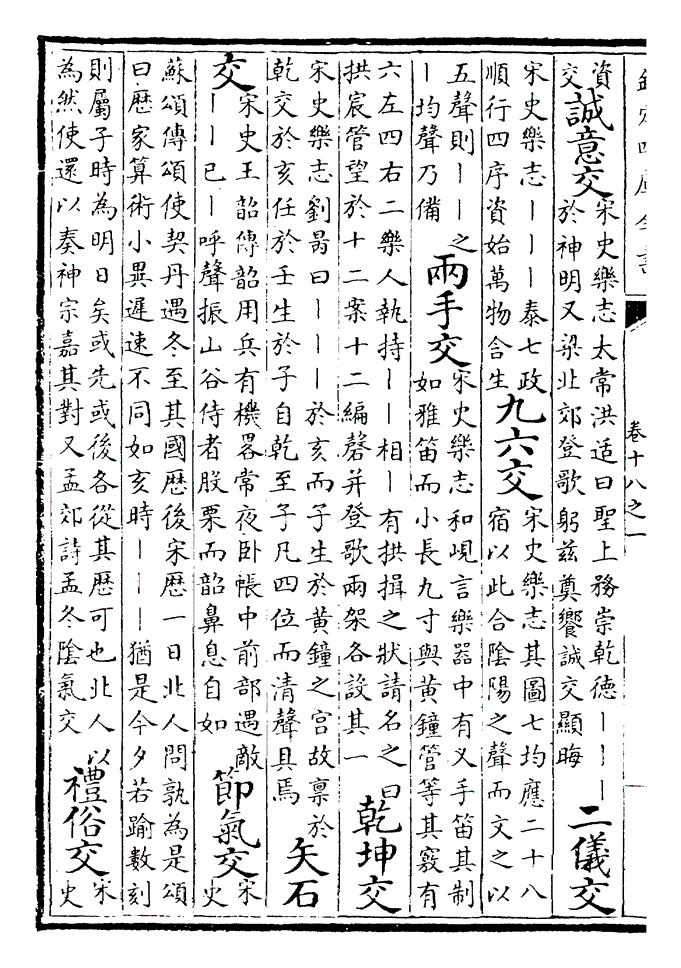 欽定四庫全書
卷十八之一
資
交
誠意交
宋史樂志太常洪适曰聖上務崇乾德丨丨丨
於神明又梁北郊登歌躬茲奠饗誠交顯晦
二儀交
宋史樂志丨丨丨泰七政
順行四序資始萬物含生
九六交
宋史樂志其圖七均應二十八
宿以此合陰陽之聲而文之以
五聲則丨丨之
丨均聲乃備
兩手交
宋史樂志和峴言樂器中有叉手笛其制
如雅笛而小長九寸與黃鐘管等其竅有
六左四右二樂人執持丨丨相丨有拱揖之狀請名之曰
拱宸管望於十二案十二編磬并登歌兩架各設其一
乾坤交
宋史樂志劉昺曰丨丨丨於亥而子生於黃鐘之宮故稟於
乾交於亥任於壬生於子自乾至子凡四位而清聲具焉
矢石
交
宋史王韶傳韶用兵有機畧常夜卧帳中前部遇敵
丨丨已丨呼聲振山谷侍者股栗而韶鼻息自如
節氣交
宋
史
蘇頌傳頌使契丹遇冬至其國歷後宋歷一日北人問孰為是頌
曰歷家算術小異遲速不同如亥時丨丨丨猶是今夕若踰數刻
則屬子時為明日矣或先或後各從其歷可也北人以
為然使還以奏神宗嘉其對又孟郊詩孟冬陰氣交
禮俗交
宋
史